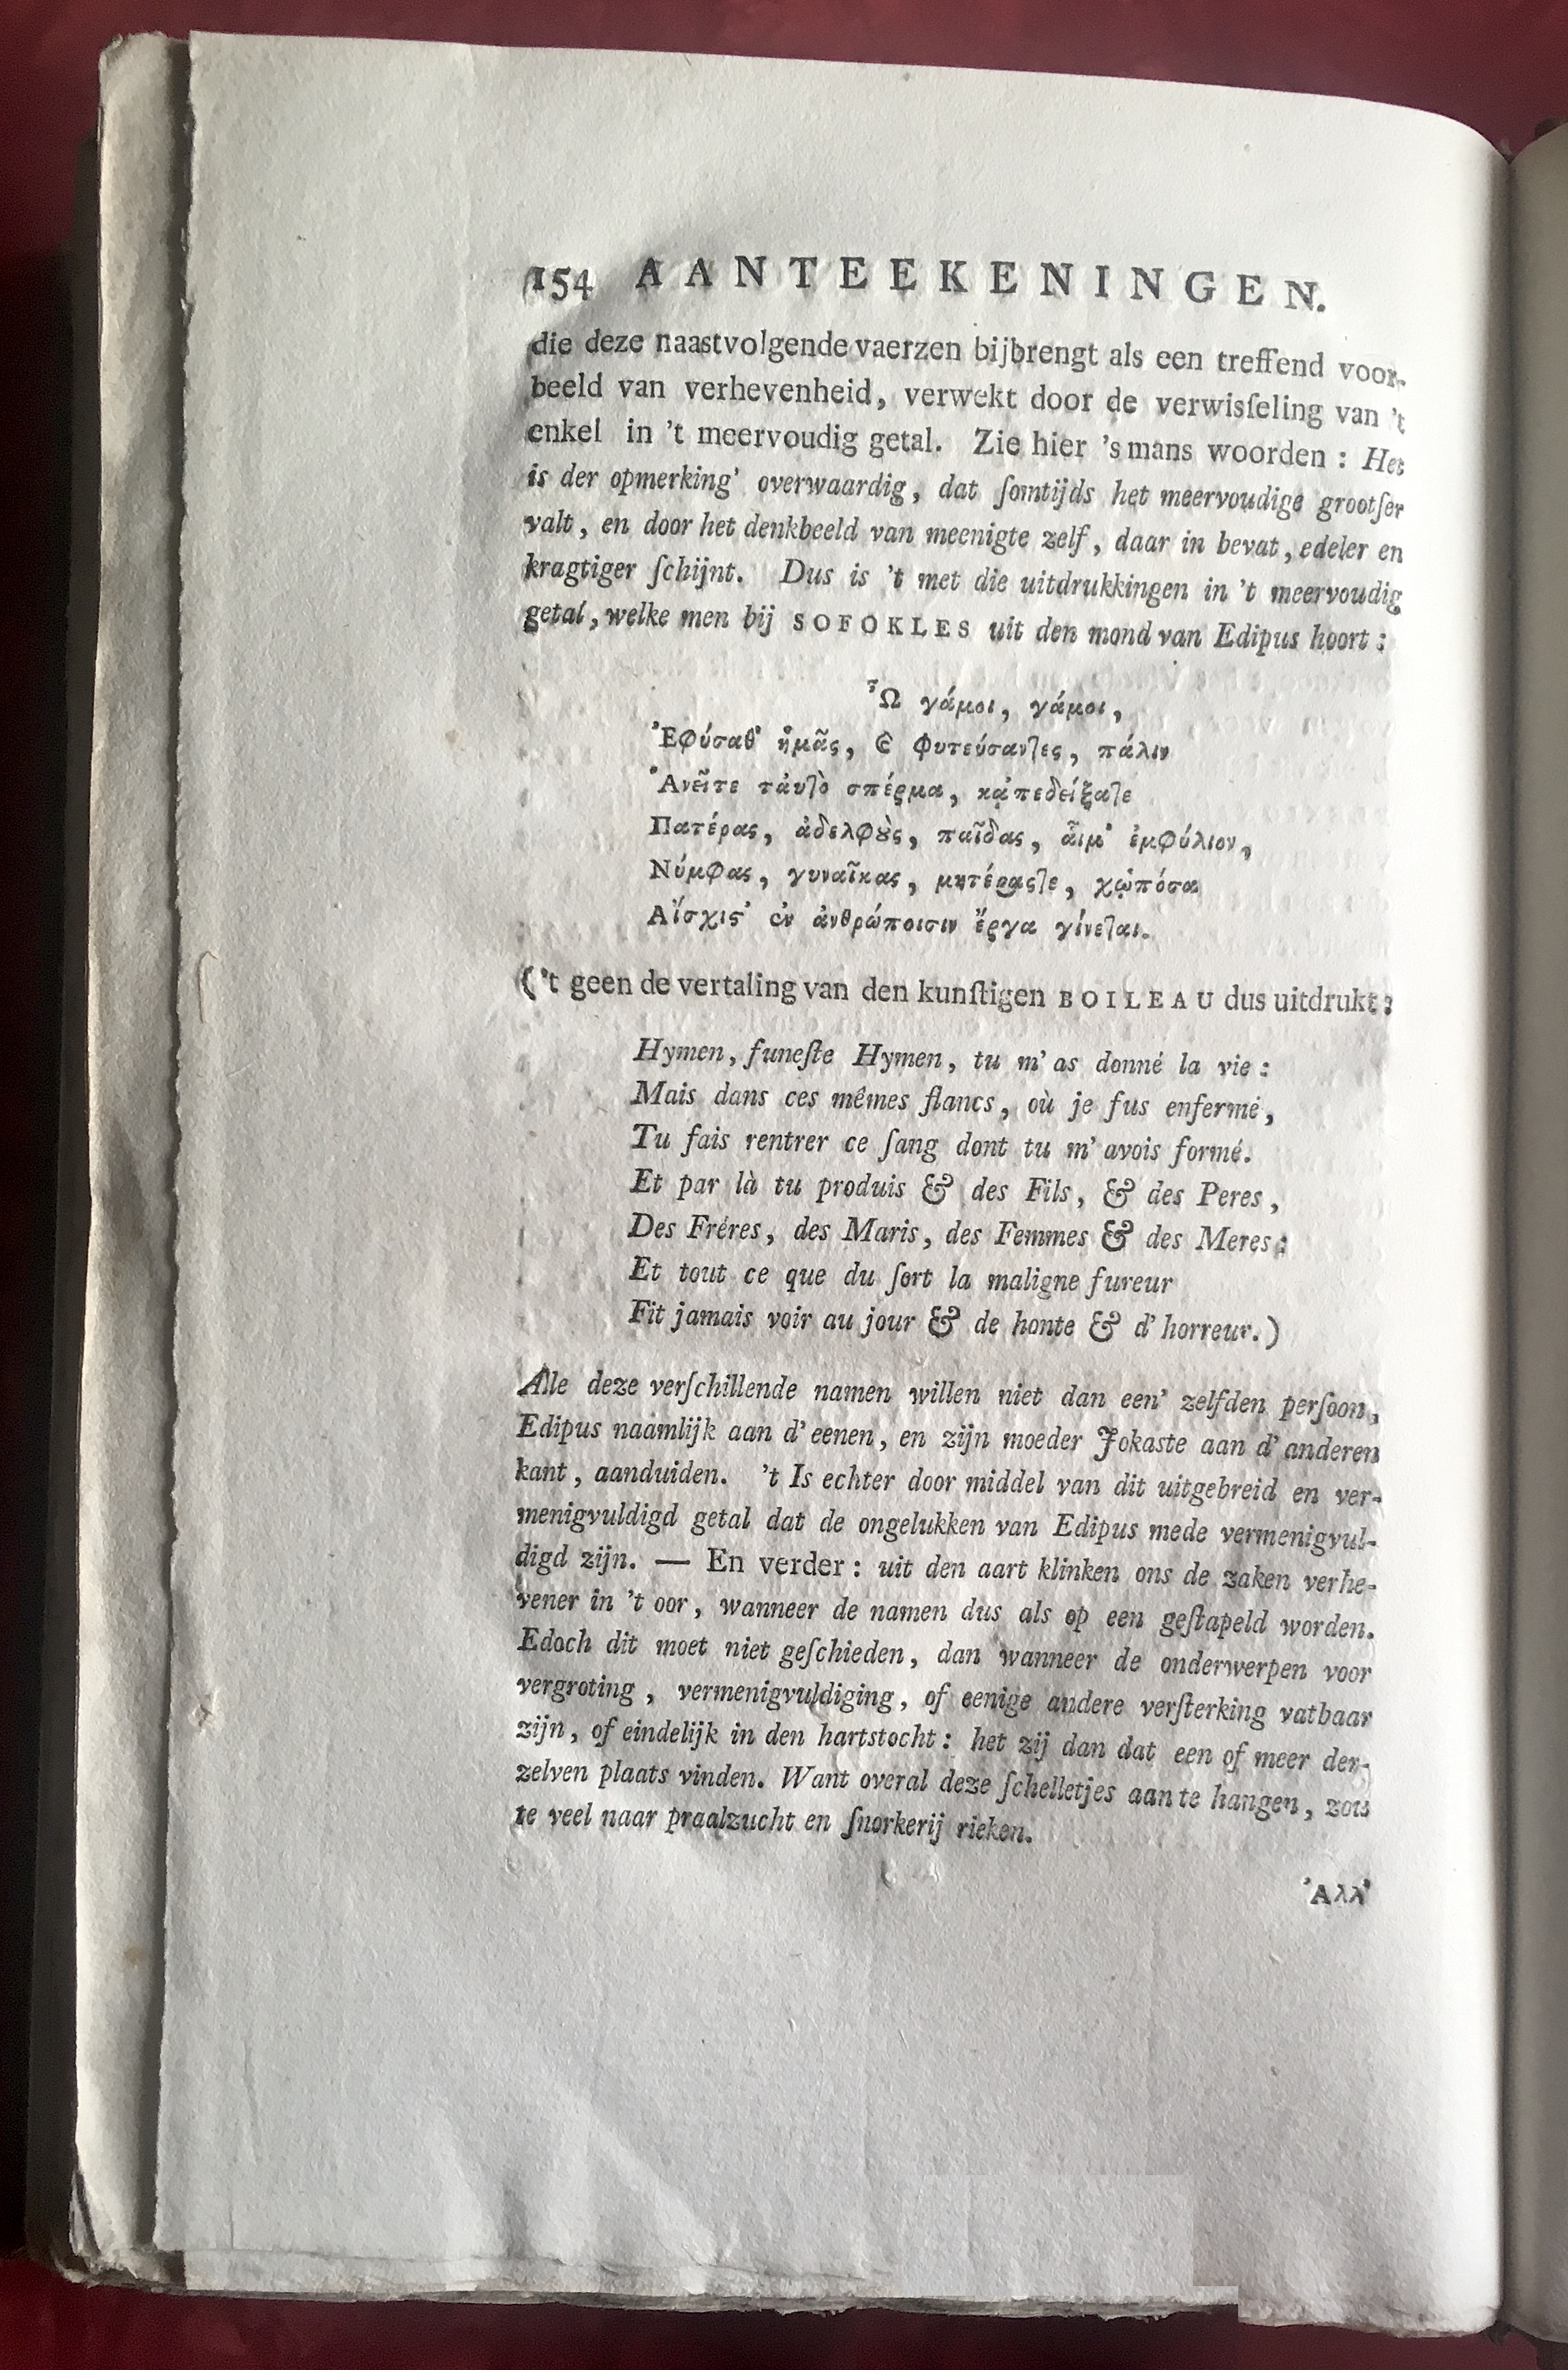 154 AANTEEKENINGEN.
die deze naastvolgende vaerzen bijbrengt als een treffend voor-
beeld van verhevenheid, verwekt door de verwisſeling van 't
enkel in 't meervoudig getal. Zie hier 's mans woorden: Het
is der opmerking' overwaardig, dat ſomtijds het meervoudige grootſer
valt, en door het denkbeeld van meenigte zelf, daar in bevat, edeler en
kragtiger ſchijnt. Dus is 't met die uitdrukkingen in 't meervoudig
getal, welke men bij SOFOKLES uit den mond van Edipus hoort:
Ὦ γάμοι, γάμοι,
Ἐφύσαθ' ἡμᾶς, ϗ φυτεύσαντες, πάλιν
Ἀνεῖτε ταὐτὸ σπέρμα, κᾀπεδείξατε
Πατέρας, ἀδελφȣ̀ς, παῖδας, αἷμ' ἐμφύλιον,
Νύμφας, γυναῖκας, μητέραςτε, χᾠπόσα
Αἴσχιϛ' ἐν ἀνθρώποισιν ἔργα γίνεται.
('t geen de vertaling van den kunſtigen BOILEAU dus uitdrukt:
Hymen, funeſte Hymen, tu m'as donné la vie:
Mais dans ces mêmes flancs, où je fus enfermé,
Tu fais rentrer ce ſang dont tu m'avois formé.
Et par là tu produis & des Fils, & des Peres,
Des Fréres, des Maris, des Femmes & des Meres:
Et tout ce que du ſort la maligne fureur
Fit jamais voir au jour & de honte & d'horreur.)
Alle deze verſchillende namen willen niet dan een' zelfden perſoon,
Edipus naamlijk aan d'eenen, en zijn moeder Jokaste aan d'anderen
kant, aanduiden. 't Is echter door middel van dit uitgebreid en ver-
menigvuldigd getal dat de ongelukken van Edipus mede vermenigvul-
digd zijn. — En verder: uit den aart klinken ons de zaken verhe-
vener in 't oor, wanneer de namen dus als op een geſtapeld worden.
Edoch dit moet niet geſchieden, dan wanneer de onderwerpen voor
vergroting, vermenigvuldiging, of eenige andere verſterking vatbaar
zijn, of eindelijk in den hartstocht: het zij dan dat een of meer der-
zelven plaats vinden. Want overal deze ſchelletjes aan te hangen, zou
te veel naar praalzucht en ſnorkerij rieken.
Ἀλλ'